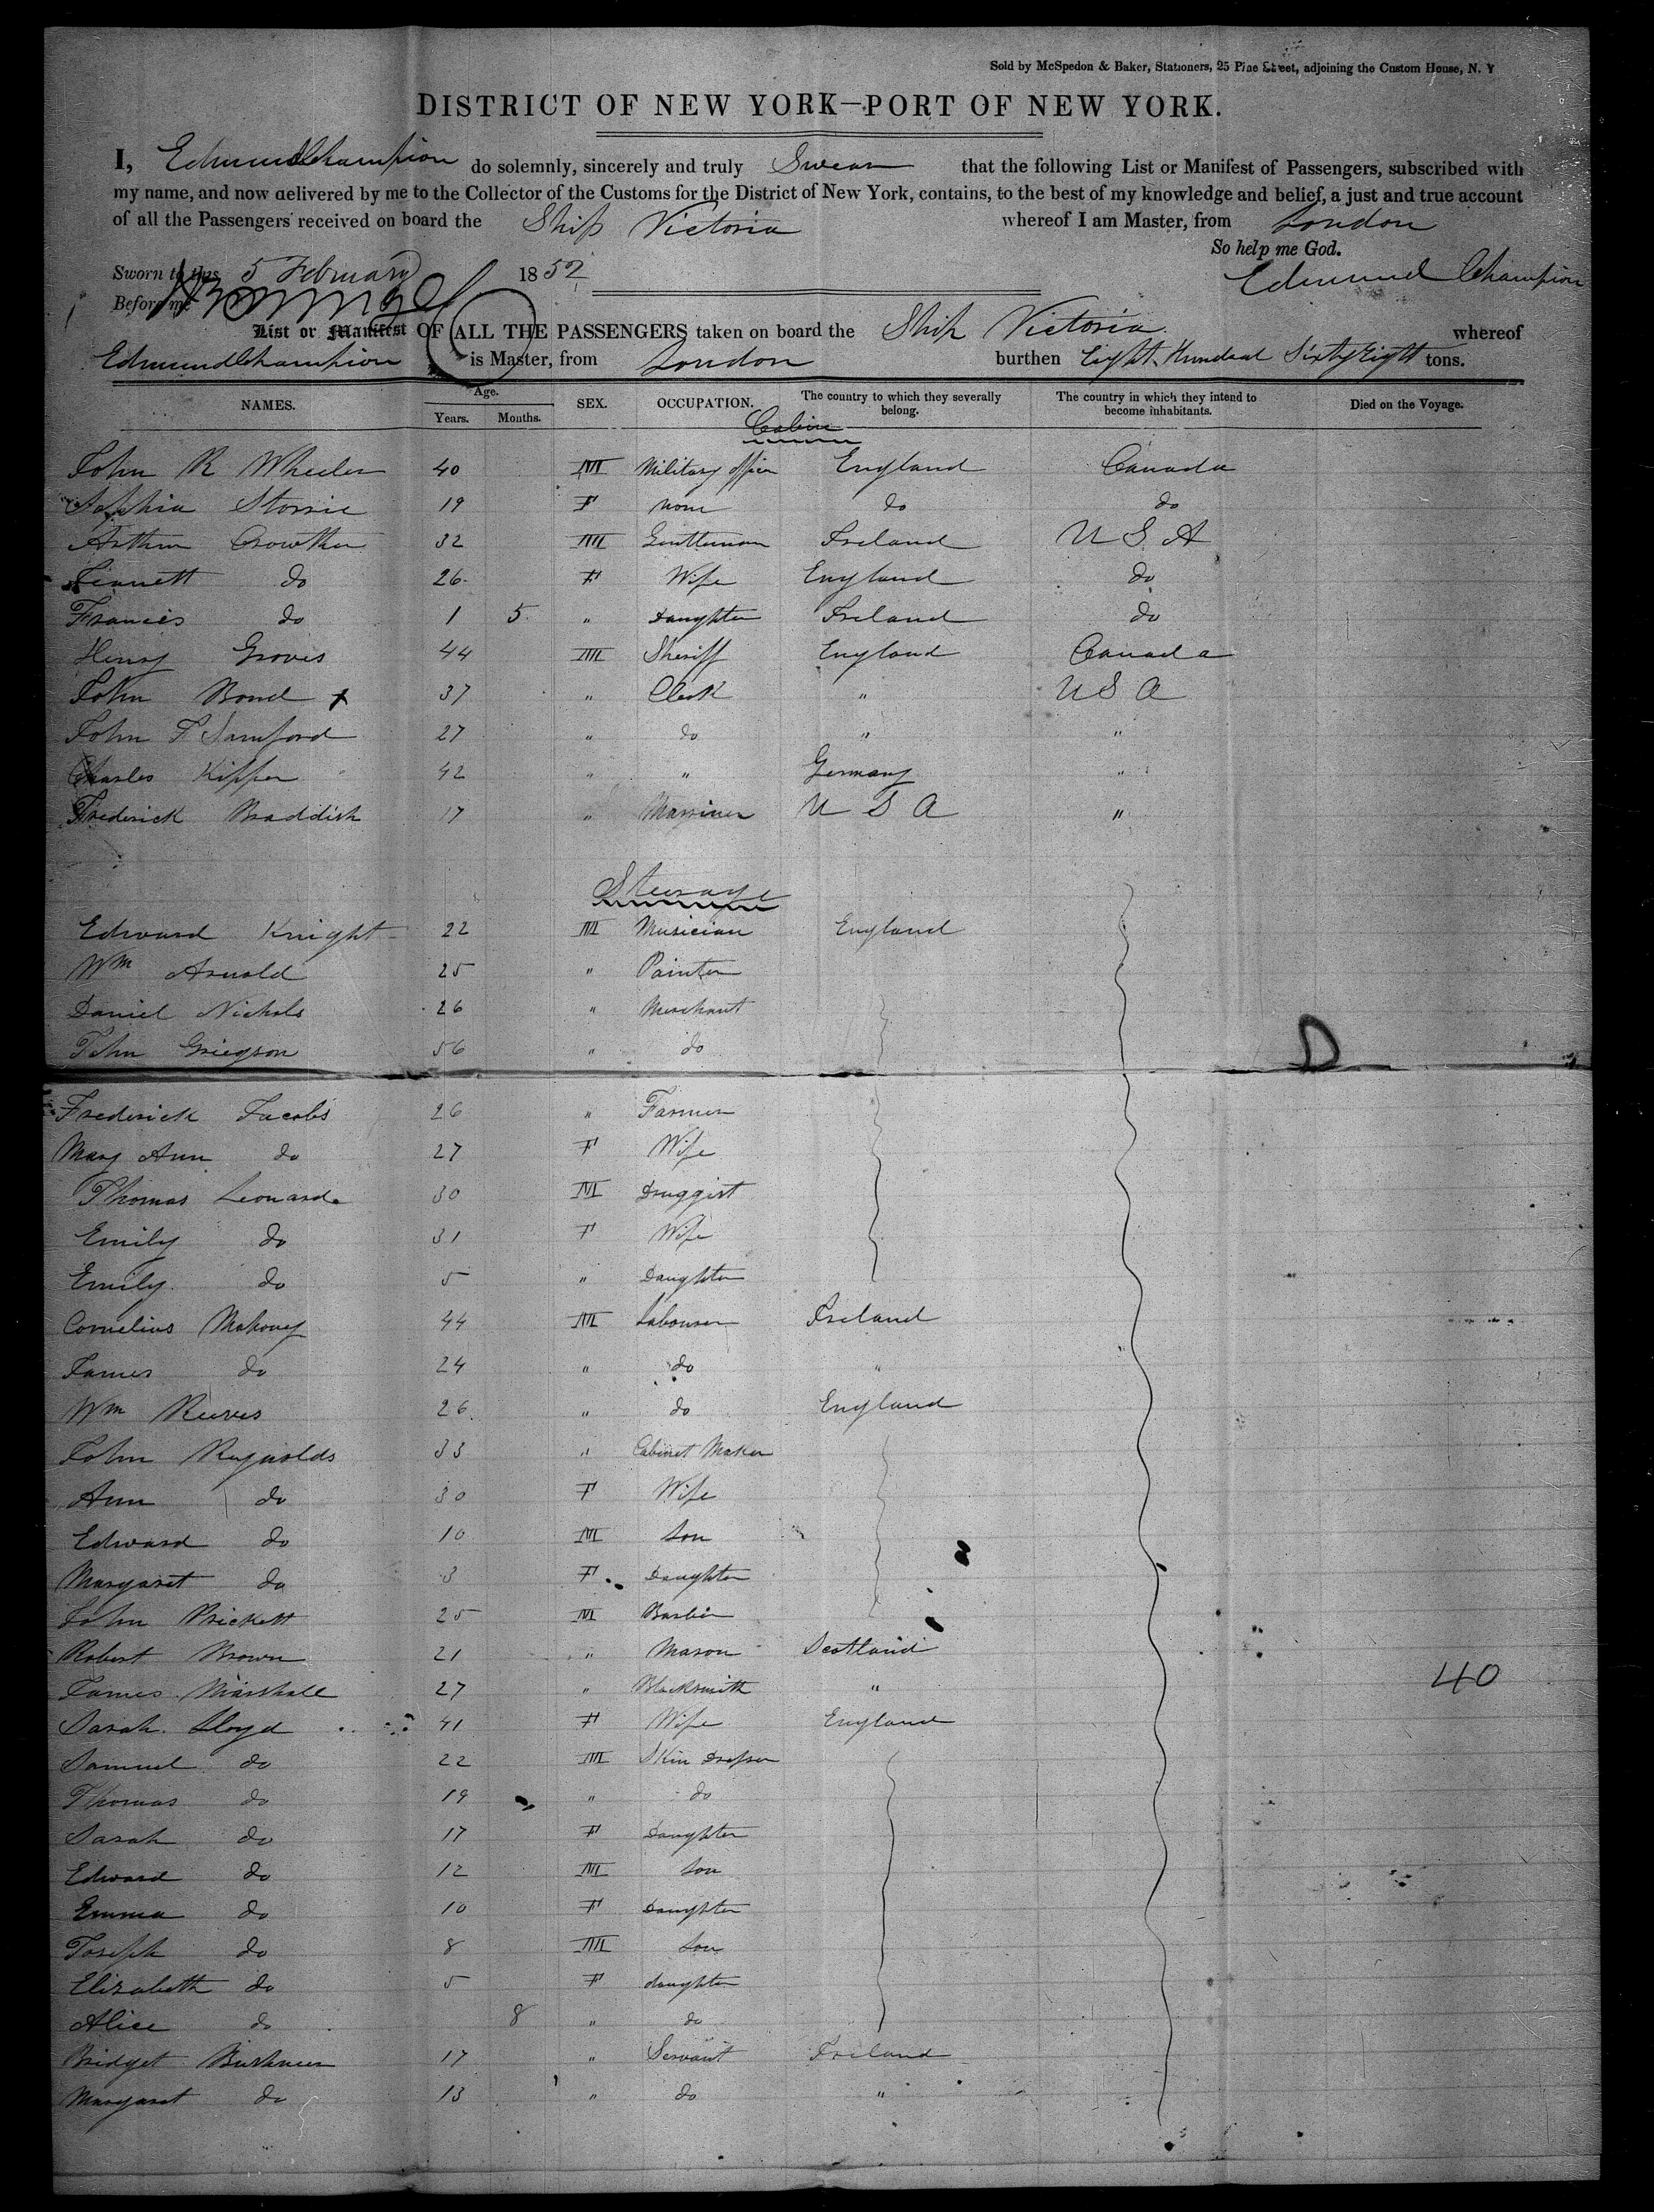 Sold by McSpedon & Baker, Stationers, 25 Pine Street, adjoining the Custom House, N. Y
DISTRICT OF NEW YORK—PORT OF NEW YORK.
I, Edmund Champion do solemnly, sincerely and truly Swear that the following List or Manifest of Passengers, subscribed with
my name, and now delivered by me to the Collector of the Customs for the District of New York, contains, to the best of my knowledge and belief, a just and true account
of all the Passengers received on board the Ship Victoria whereof I am Master, from London
So help me God.
Sworn to this 5 February 1852 Edmund Champion
Before me
List or Manifest OF ALL THE PASSENGERS taken on board the Ship Victoria whereof
Edmund Champion is Master, from London burthen Eight Hundred Sixty Eight tons.
NAMES. Age. Years. Months. SEX. OCCUPATION. The country to which they severally belong. The country in which they intend to become inhabitants. Died on the Voyage.
Cabin
John R Wheeler 40 M Military Officer England Canada
Sophia Storrie 19 F None do do
Arthur Crowther 32 M Gentleman Ireland U S A
do 26 F Wife England do
Frances do 1 5 " Daughter Ireland do
Henry Groves 44 M Sheriff England Canada
John Bond x 37 " Clerk " U S A
John F Samford 27 " do " "
Charles Kipper 42 " " Germany "
Frederick Braddish 17 " Marriner U S A "
Steerage
Edward Knight 22 M Musician England
Wm Arnold 25 " Painter
Daniel Nichols 26 " Merchant
John Griegson 56 " do
D
Frederick Jacobs 26 " Farmer
Mary Ann do 27 F Wife
Thomas Leonard 30 M Druggist
Emily do 31 F Wife
Emily do 5 " Daughter
Cornelius Mahoney 44 M Labourer Ireland
James do 24 " do "
Wm Reeves 26 " do England
John Reynolds 33 " Cabinet Maker
Ann do 30 F Wife
Edward do 10 M Son
Margaret do 3 F Daughter
John Prickett 25 M Barber
Robert Brown 21 " Mason Scotland
James Marshall 27 " Blacksmith "
40
Sarah Lloyd 41 F Wife England
Samuel do 22 M Skin Dresser
Thomas do 19 " do
Sarah do 17 F Daughter
Edward do 12 M Son
Emma do 10 F Daughter
Joseph do 8 M Son
Elizabeth do 5 F daughter
Alice do 8 " do
Bridget 17 " Servant Ireland
Margaret do 13 " do "